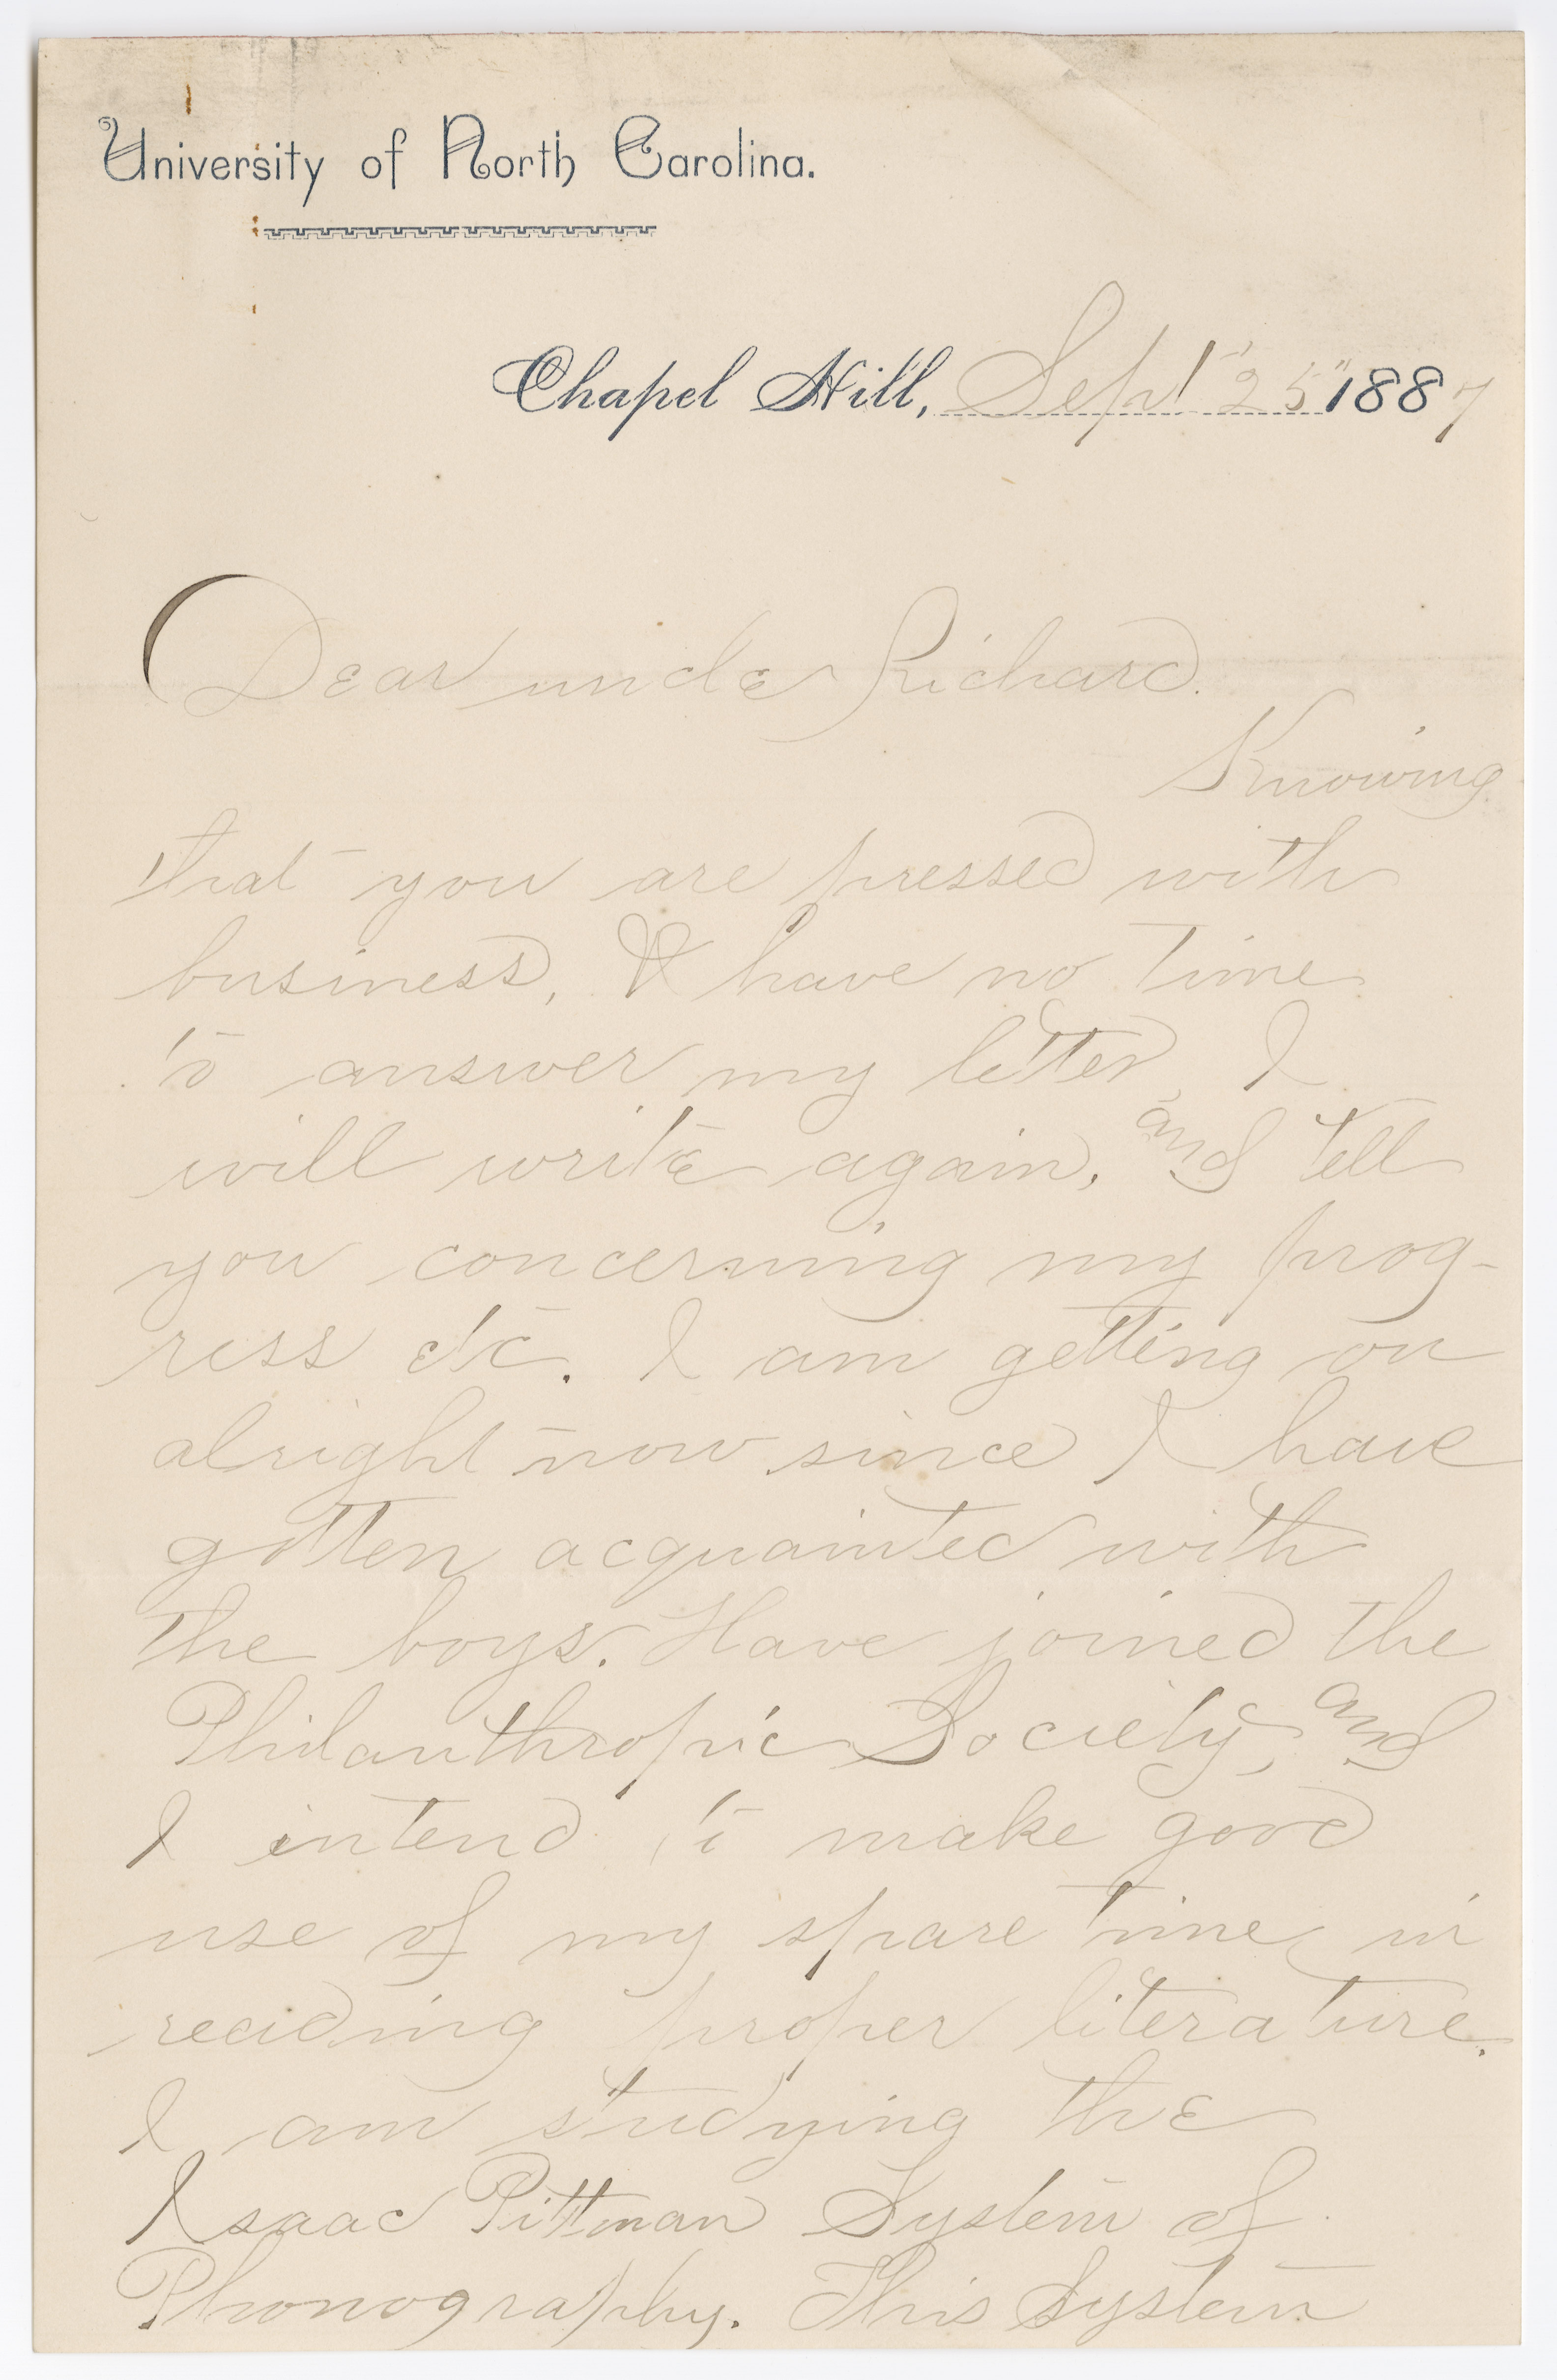 University of North Carolina.
Chapel Hill, Sept 25" 1887
Dear uncle Richard.
Knowing
that you are pressed with
business, & have no time
to answer my letter, I
will write again, and tell
you concerning my prog-
ress etc. I am getting on
alright now since I have
gotten acquainted with
the boys. Have joined the
Philanthropic Society, and
I intend to make good
use of my spare time, in
reading proper literature.
I am studying the
Isaac Pittman System of
Phonography. This System